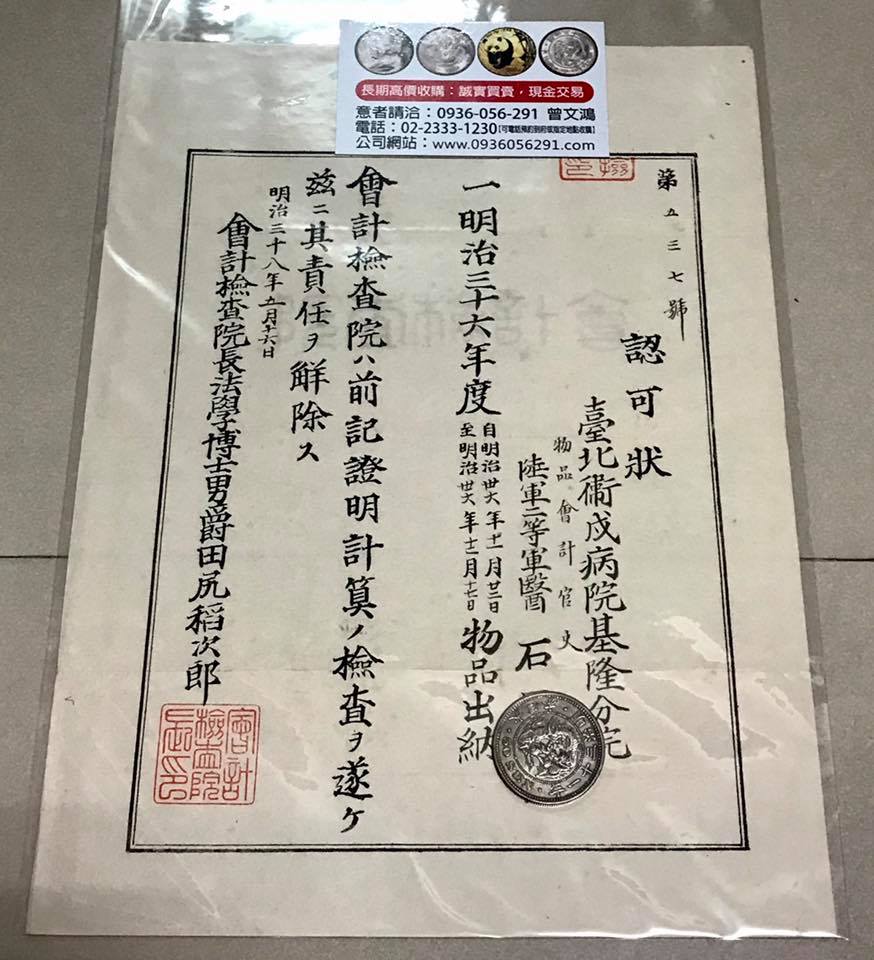 長期高價收購：誠實買賣，現金交易
意者請洽：0936-056-291 曾文鴻
電話：02-2333-1230【可電話預約到府或指定地點收購】
公司網站：www.0936056291.com
第五三七號
認可狀
臺北衞戍病院基隆分院
物品會計官吏
陸軍二等軍醫 石
一明治三十六年度
自明治卅六年十一月廿三日
至明治卅六年十二月十七日
物品出納
會計檢查院ハ前記證明計算ノ檢査ヲ遂ケ
茲ニ其責任ヲ解除ス
明治三十八年五月十六日
會計檢查院長法學博士男爵田尻稻次郎
會計
檢查院
長印